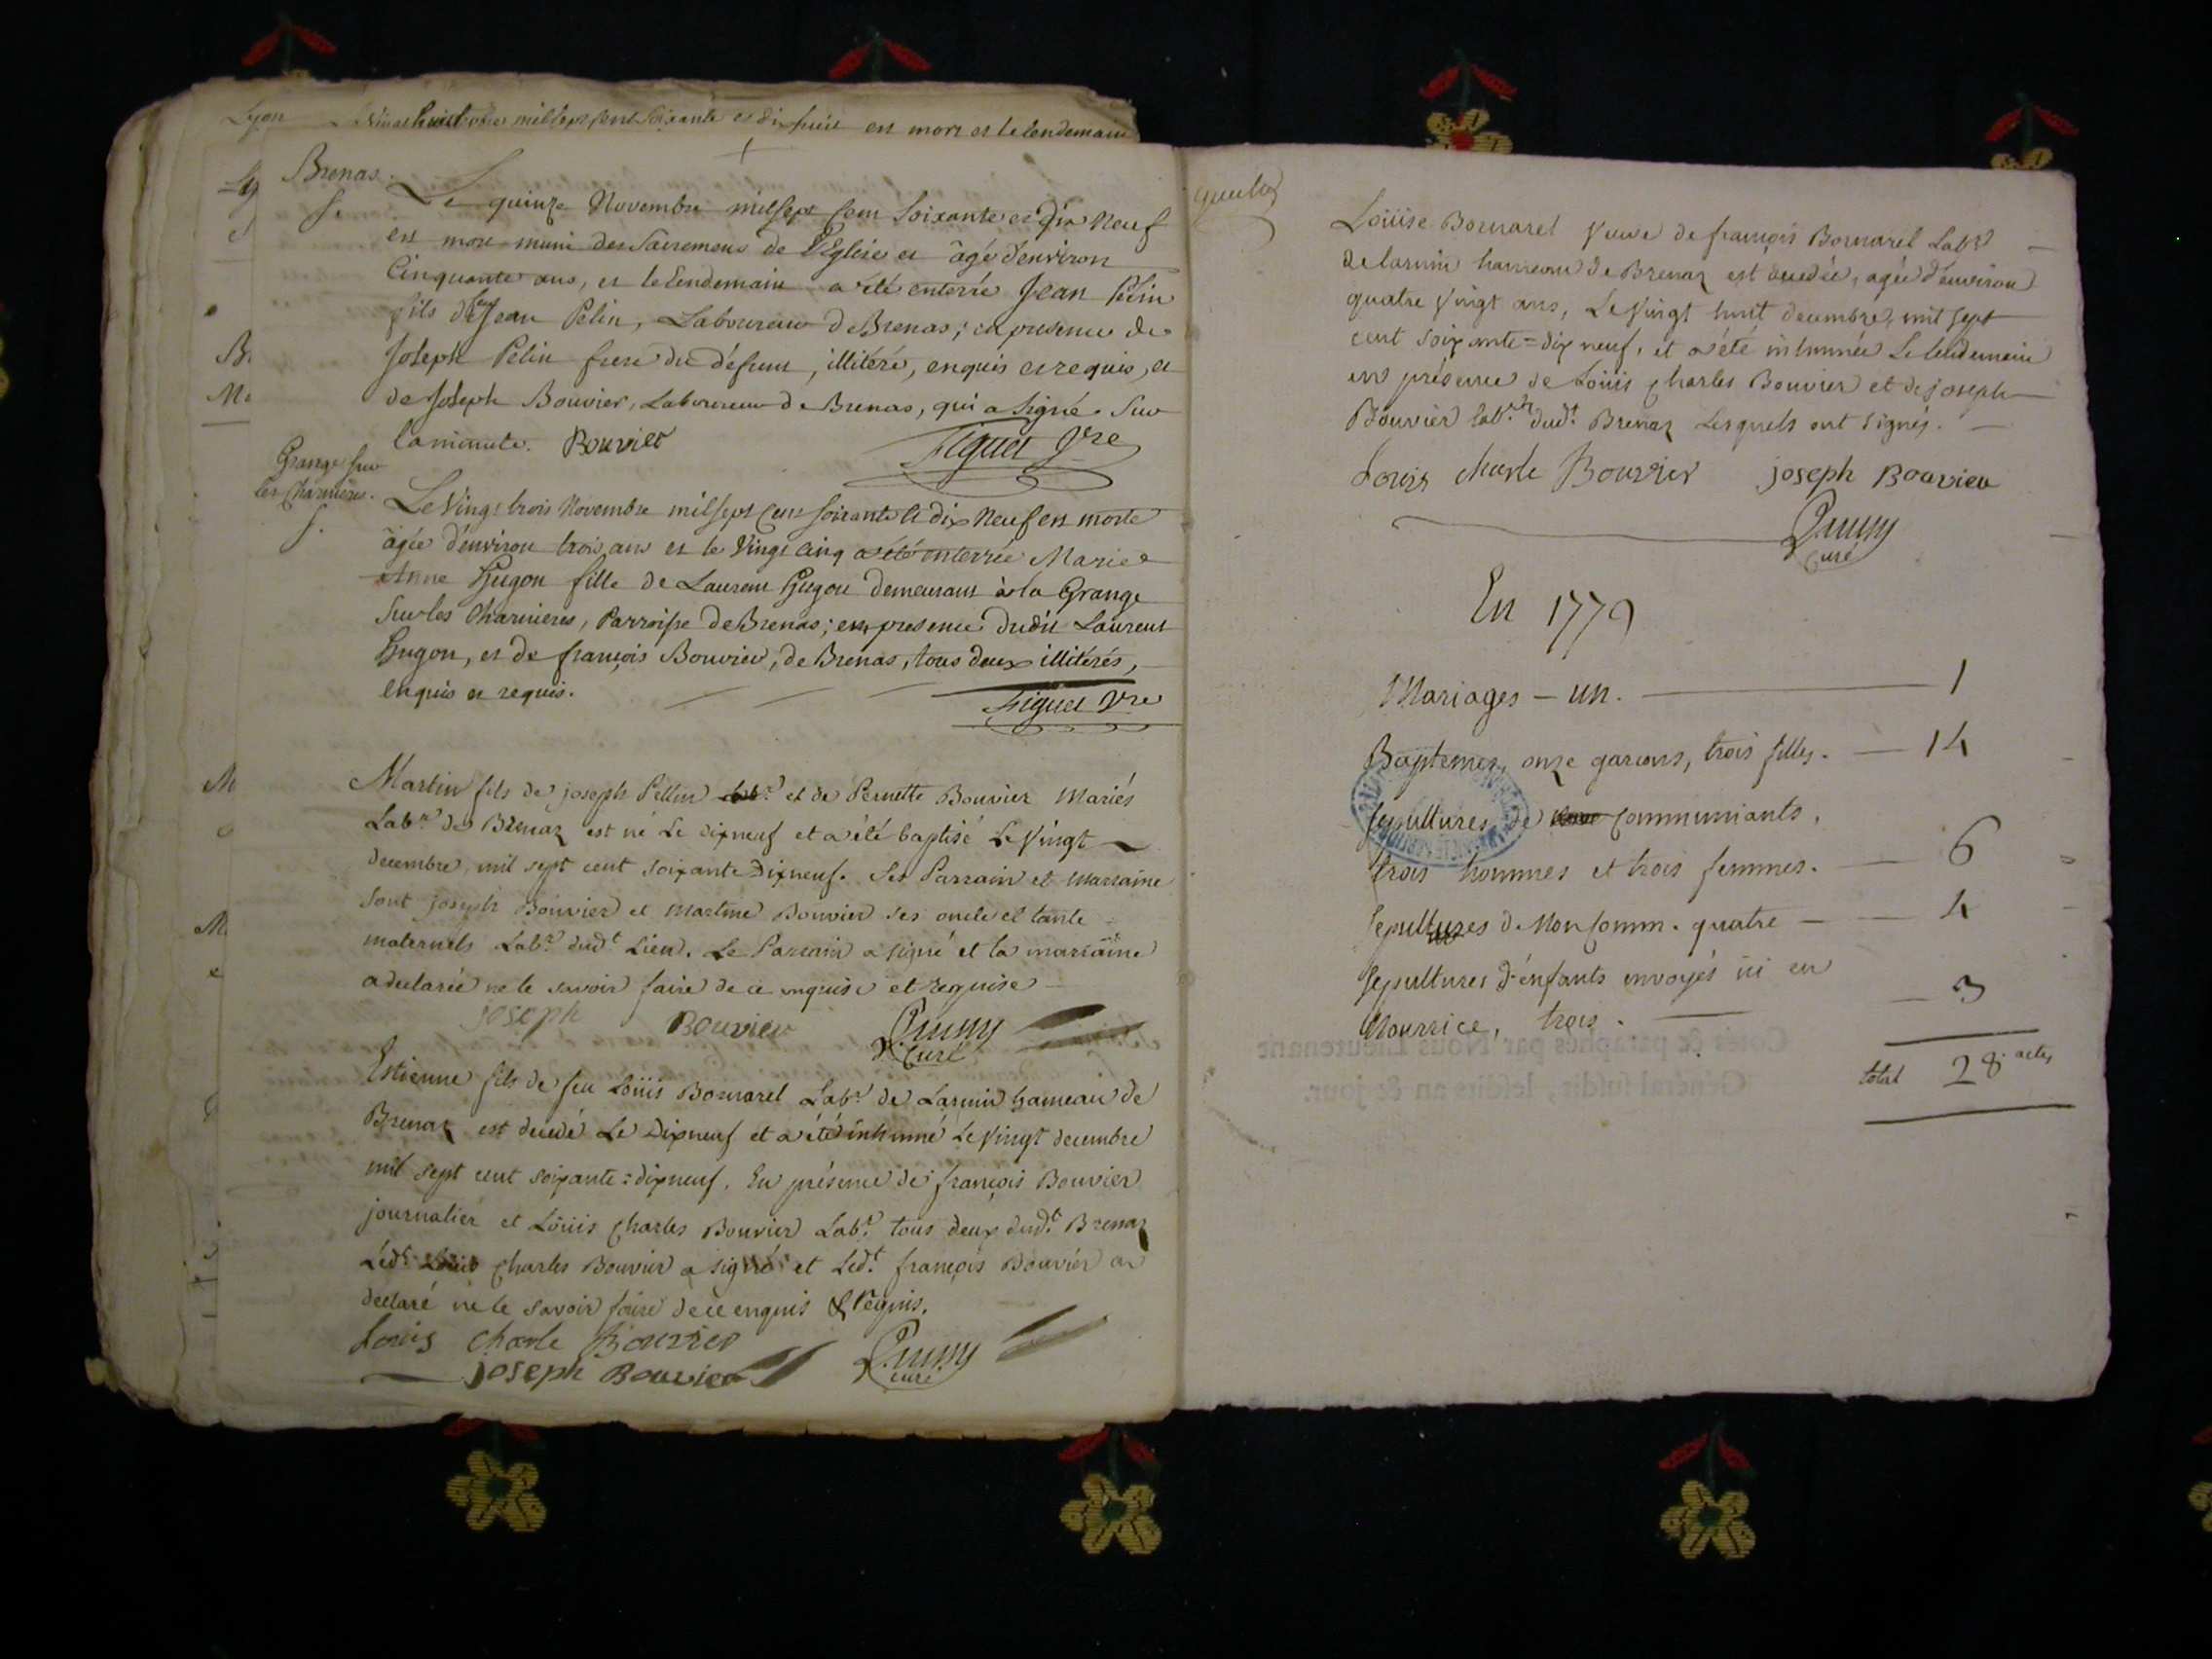 Lyon huit mil sept cent soixante et dix huit est mort et le lendemain
Brenas.
S.
Le quinze Novembre mil sept cent soixante et dix Neuf
est mort muni des Sacremens de l'Eglise et âgé d'environ
Cinquante ans, et le Lendemain a été enterré Jean Pelin
fils de feu Jean Pelin, Laboureur de Brenas; en presence de
Joseph Pelin frere du défunt, illitéré, enquis et requis, et
de Joseph Bouvier, Laboureur de Brenas, qui a signé sur
la minute. Bouvier Figuet Vre
Grange sur
les Charnieres.
S.
Le Vingt trois Novembre mil sept cent soixante et dix Neuf est morte
âgée d'environ trois ans et le Vingt cinq a été enterrée Marie
Anne Hugon fille de Laurent Hugon demeurant à la Grange
sur les Charnieres, Parroisse de Brenas; en presence dudit Laurent
Hugon, et de françois Bouvier, de Brenas, tous deux illitérés,
enquis et requis.
Figuet Vre
Martin fils de joseph Pellin et de Pernette Bouvier Mariés
Labrs de Brenaz est né Le dixneuf et a été baptisé Le Vingt
decembre, mil sept cent soixante Dixneuf. Ses Parrain et Marraine
sont joseph Bouvier et Martine Bouvier ses oncle et tante
maternels Labrs dudt Lieu. Le Parrain a signé et la marraine
a declarée ne le savoir faire de ce enquise et requise
joseph Bouvier
Curé
Estienne fils de feu Loüis Bornarel Labr de Larnin hameau de
Brenaz est decedé Le Dixneuf et a été inhumé Le Vingt decembre
mil sept cent soixante=dixneuf. En présence de françois Bouvier
journalier et Loüis Charles Bouvier Labr. tous deux dudt. Brenaz
Ledt Loüis Charles Bouvier a signé et Ledt. françois Bouvier a
declaré ne le savoir faire de ce enquis & requis.
Louis charle Bouvier
joseph Bouvier
curé
Loüise Bornarel Veuve de françois Bornarel Labr
de Larnin hameau de Brenaz est decedée, agée d'environ
quatre Vingt ans, Le Vingt huit decembre, mil sept
cent soixante=dix neuf, et a été inhumée Le lendemain
en présence de Loüis Charles Bouvier et de joseph
Bouvier Labrs dudt. Brenaz Lesquels ont signés.
Louis charle Bouvier joseph Bouvier
Curé
En 1779
Mariages — un. — 1
Baptemes, onze garcons, trois filles. — 14
Sepultures de communiants,
trois hommes et trois femmes. — 6
Sepultures de Non Comm. quatre — 4
Sepultures d'énfants envoyés ici en
Nourrice, trois. — 3
total 28 actes
Cotés & paraphés par Nous Lieutenant
Général susdit, lesdits an & jour.